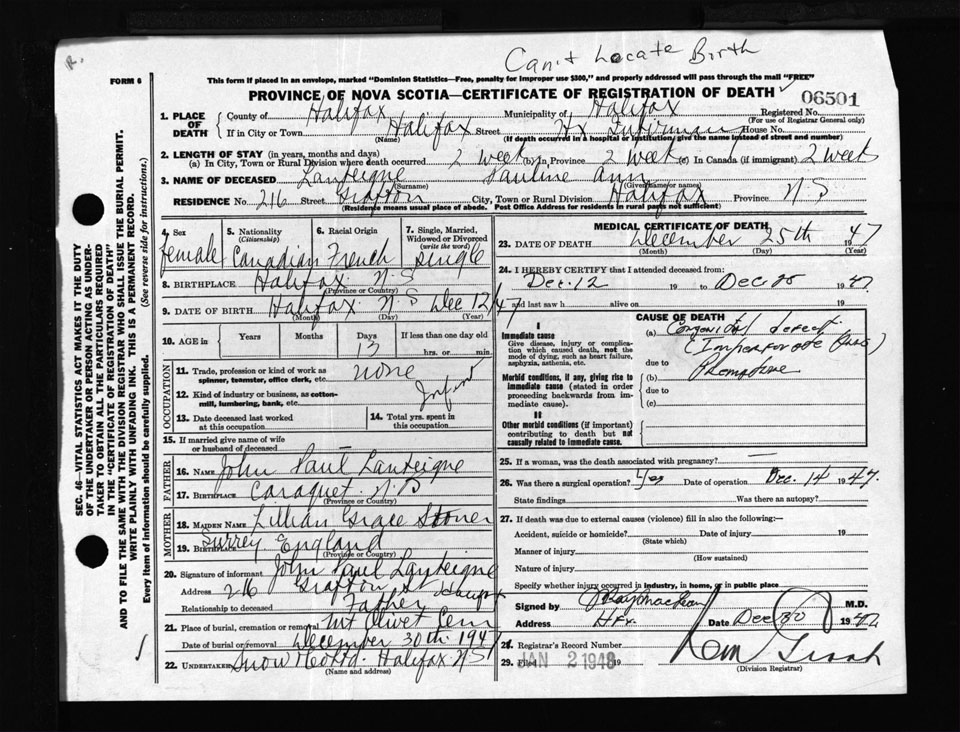 Can't Locate Birth
FORM 6
This form if placed in an envelope, marked "Dominion Statistics—Free, penalty for improper use $300," and properly addressed will pass through the mail "FREE"
PROVINCE OF NOVA SCOTIA—CERTIFICATE OF REGISTRATION OF DEATH
06501
1. PLACE OF DEATH
County of Halifax Municipality of Halifax Registered No.
(For use of Registrar General only)
If in City or Town Halifax Street Hx Infirmary House No.
(Name) (If death occurred in a hospital or institution, give the name instead of street and number)
2. LENGTH OF STAY (in years, months and days)
(a) In City, Town or Rural Division where death occurred 2 week (b) In Province 2 week (c) In Canada (if immigrant) 2 week
3. NAME OF DECEASED Lanteigne Pauline Ann
(Surname) (Given name or names)
RESIDENCE No. 216 Street Grafton City, Town or Rural Division Halifax Province N.S
(Residence means usual place of abode. Post Office Address for residents in rural parts not sufficient)
4. Sex female
5. Nationality (Citizenship) Canadian
6. Racial Origin French
7. Single, Married, Widowed or Divorced (write the word) Single
8. BIRTHPLACE Halifax N.S
(Province or Country)
9. DATE OF BIRTH Halifax N.S Dec 12/47
(Month) (Day) (Year)
10. AGE in Years Months Days 13 If less than one day old hrs. or min.
OCCUPATION
11. Trade, profession or kind of work as spinner, teamster, office clerk, etc. none
12. Kind of industry or business, as cotton-mill, lumbering, bank, etc. Infant
13. Date deceased last worked at this occupation
14. Total yrs. spent in this occupation
15. If married give name of wife or husband of deceased
FATHER
16. NAME John Paul Lanteigne
17. BIRTHPLACE Caraquet N.B
(Province or Country)
MOTHER
18. MAIDEN NAME Lillian Grace Stoner
19. BIRTHPLACE Surrey England
(Province or Country)
20. Signature of informant John Paul Lanteigne
Address 216 Grafton St
Relationship to deceased Father
21. Place of burial, cremation or removal Mt Olivet Cem
Date of burial or removal December 30th 194
22. UNDERTAKER Snow & Co Ltd. Halifax N.S
(Name and address)
MEDICAL CERTIFICATE OF DEATH
23. DATE OF DEATH December 25th 1947
(Month) (Day) (Year)
24. I HEREBY CERTIFY that I attended deceased from:
Dec. 12 19 to Dec 25 1947
and last saw h alive on 19
CAUSE OF DEATH
I
Immediate cause
Give disease, injury or complication which caused death, not the mode of dying, such as heart failure, asphyxia, asthenia, etc.
(a) Congenital defect
(Imperforate Anus)
due to
Morbid conditions, if any, giving rise to immediate cause (stated in order proceeding backwards from immediate cause).
(b) Premature
due to
(c)
II
Other morbid conditions (if important) contributing to death but not causally related to immediate cause.
25. If a woman, was the death associated with pregnancy? —
26. Was there a surgical operation? Yes Date of operation Dec. 14 1947.
State findings Was there an autopsy?
27. If death was due to external causes (violence) fill in also the following:—
Accident, suicide or homicide? Date of injury 19
(State which)
Manner of injury
(How sustained)
Nature of injury
Specify whether injury occurred in industry, in home, or in public place
Signed by M.D.
Address Hfx. Date Dec 30 1947
28. Registrar's Record Number
29. Filed JAN 2 1948 19
(Division Registrar)
SEC. 46—VITAL STATISTICS ACT MAKES IT THE DUTY
OF THE UNDERTAKER OR PERSON ACTING AS UNDER-
TAKER TO OBTAIN ALL THE PARTICULARS REQUIRED
IN THE "CERTIFICATE OF REGISTRATION OF DEATH"
AND TO FILE THE SAME WITH THE DIVISION REGISTRAR WHO SHALL ISSUE THE BURIAL PERMIT.
WRITE PLAINLY WITH UNFADING INK. THIS IS A PERMANENT RECORD.
Every item of information should be carefully supplied. (See reverse side for instructions.)